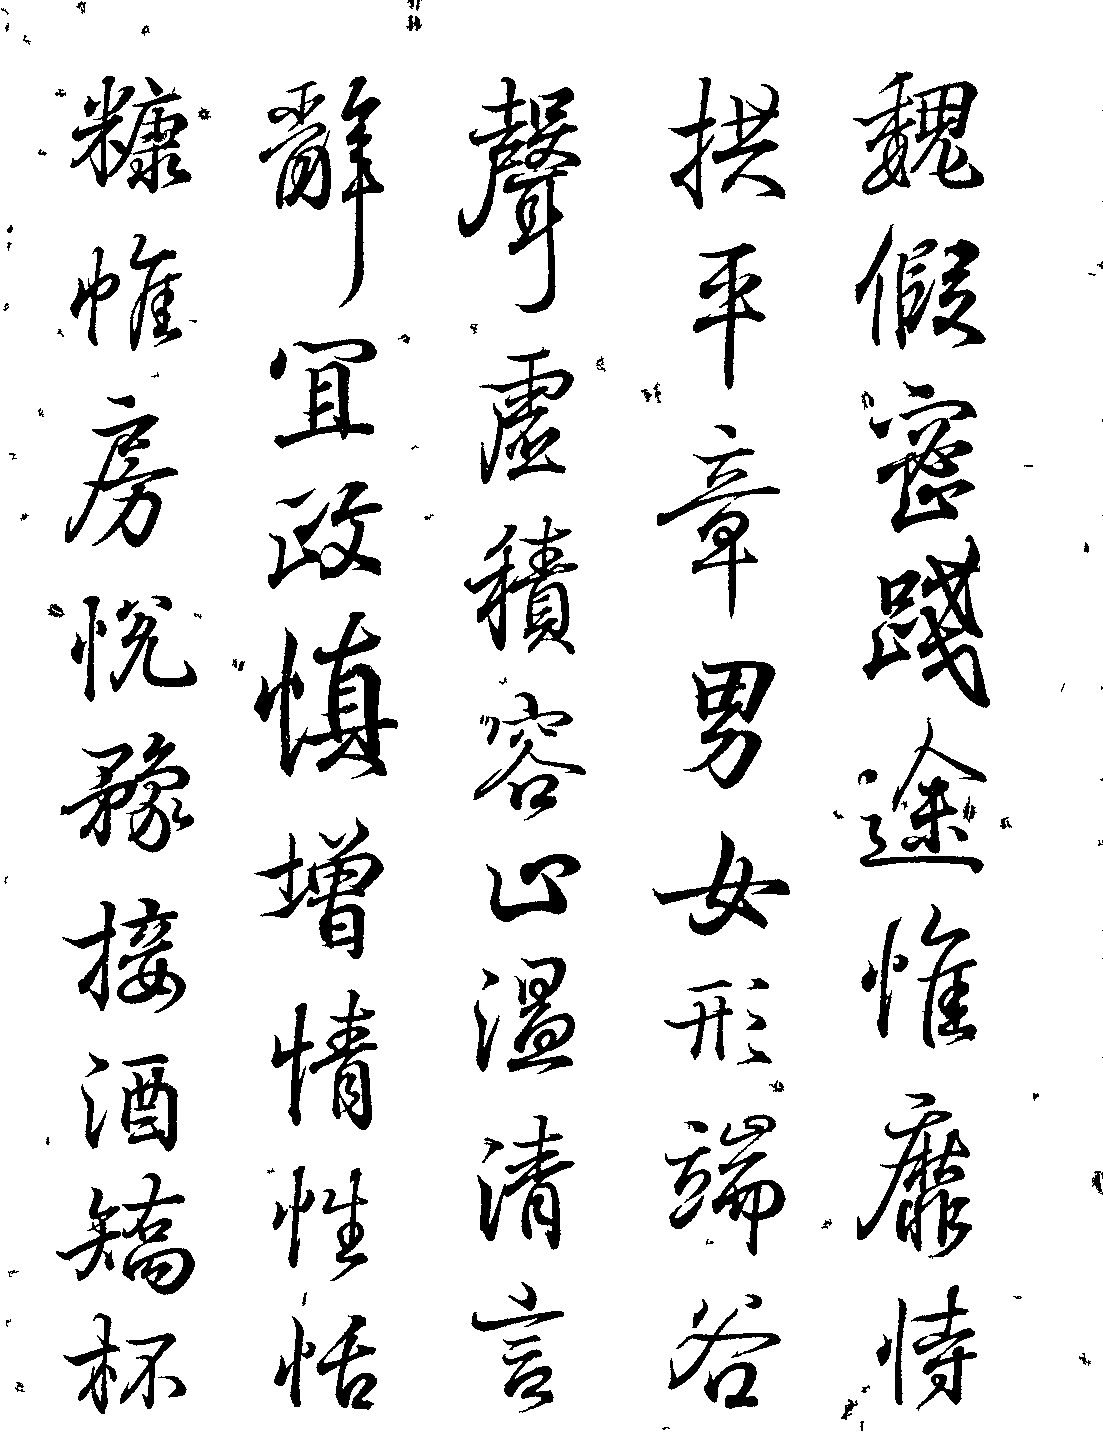 魏假密踐途惟靡恃
拱平章男女形端谷
聲虛積容止溫清言
辭宜政慎增情性恬
糠帷房悅豫接酒矯杯